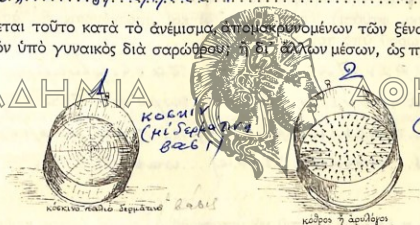 εται τοῦτο κατὰ τὸ ἀνέμισμα, ἀπομακρυνομένων τῶν ξένα
ὸν ὑπὸ γυναικὸς διὰ σαρώθρου; ἢ δι' ἄλλων μέσων, ὡς π
1
2
ΑΔΗΜΙΑ
ΑΘΗ
κοσκίν
(μὲ δερματίνη
βάσι)
κόσκινο παλιὸ δερμάτινο βάσις
κόθρος ἢ ἀρυλόγος